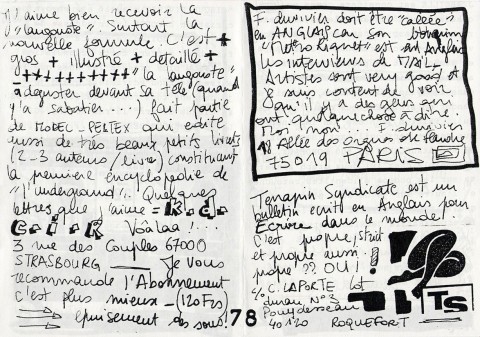 J'aime bien recevoir la
"langouste". Surtout la
nouvelle formule. C'est +
gros + illustré + détaillé +
+++++++++++ "la langouste"
à déguster devant sa télé (quand
y'a sabatier...) fait partie
de MODEL-PELTEX qui édite
aussi de très beaux petits livrets
(2-3 auteurs/livre) constituant
la première encyclopédie de
"l'underground". Quelques
lettres que j'aime - k.d.
c.i.R Voilaa!...
3 rue des Couples 67000
STRASBOURG — Je vous
recommande l'Abonnement
c'est plus mieux - (120 Frs)
épuisement des sous!
78
F. duvivier doit être "calée"
en ANGLAIS car son bouquin
"Metro Riquet" est en Anglais
Les interviews de MAIL-
Artistes sont very good et
je suis content de voir
qu'il y a des gens qui
ont quelquechose à dire.
Moi, non... F. duvivier
Allée des Orgues de Flandre
75019 PARIS
Terrapin Syndicate est un
bulletin écrit en Anglais pour
Ecrire dans le monde!
C'est propre, strict
et propre aussi.
propre?? OUI!
c/o C. LAPORTE lot
dunau N°3
Pouydesseau
40120 ROQUEFORT